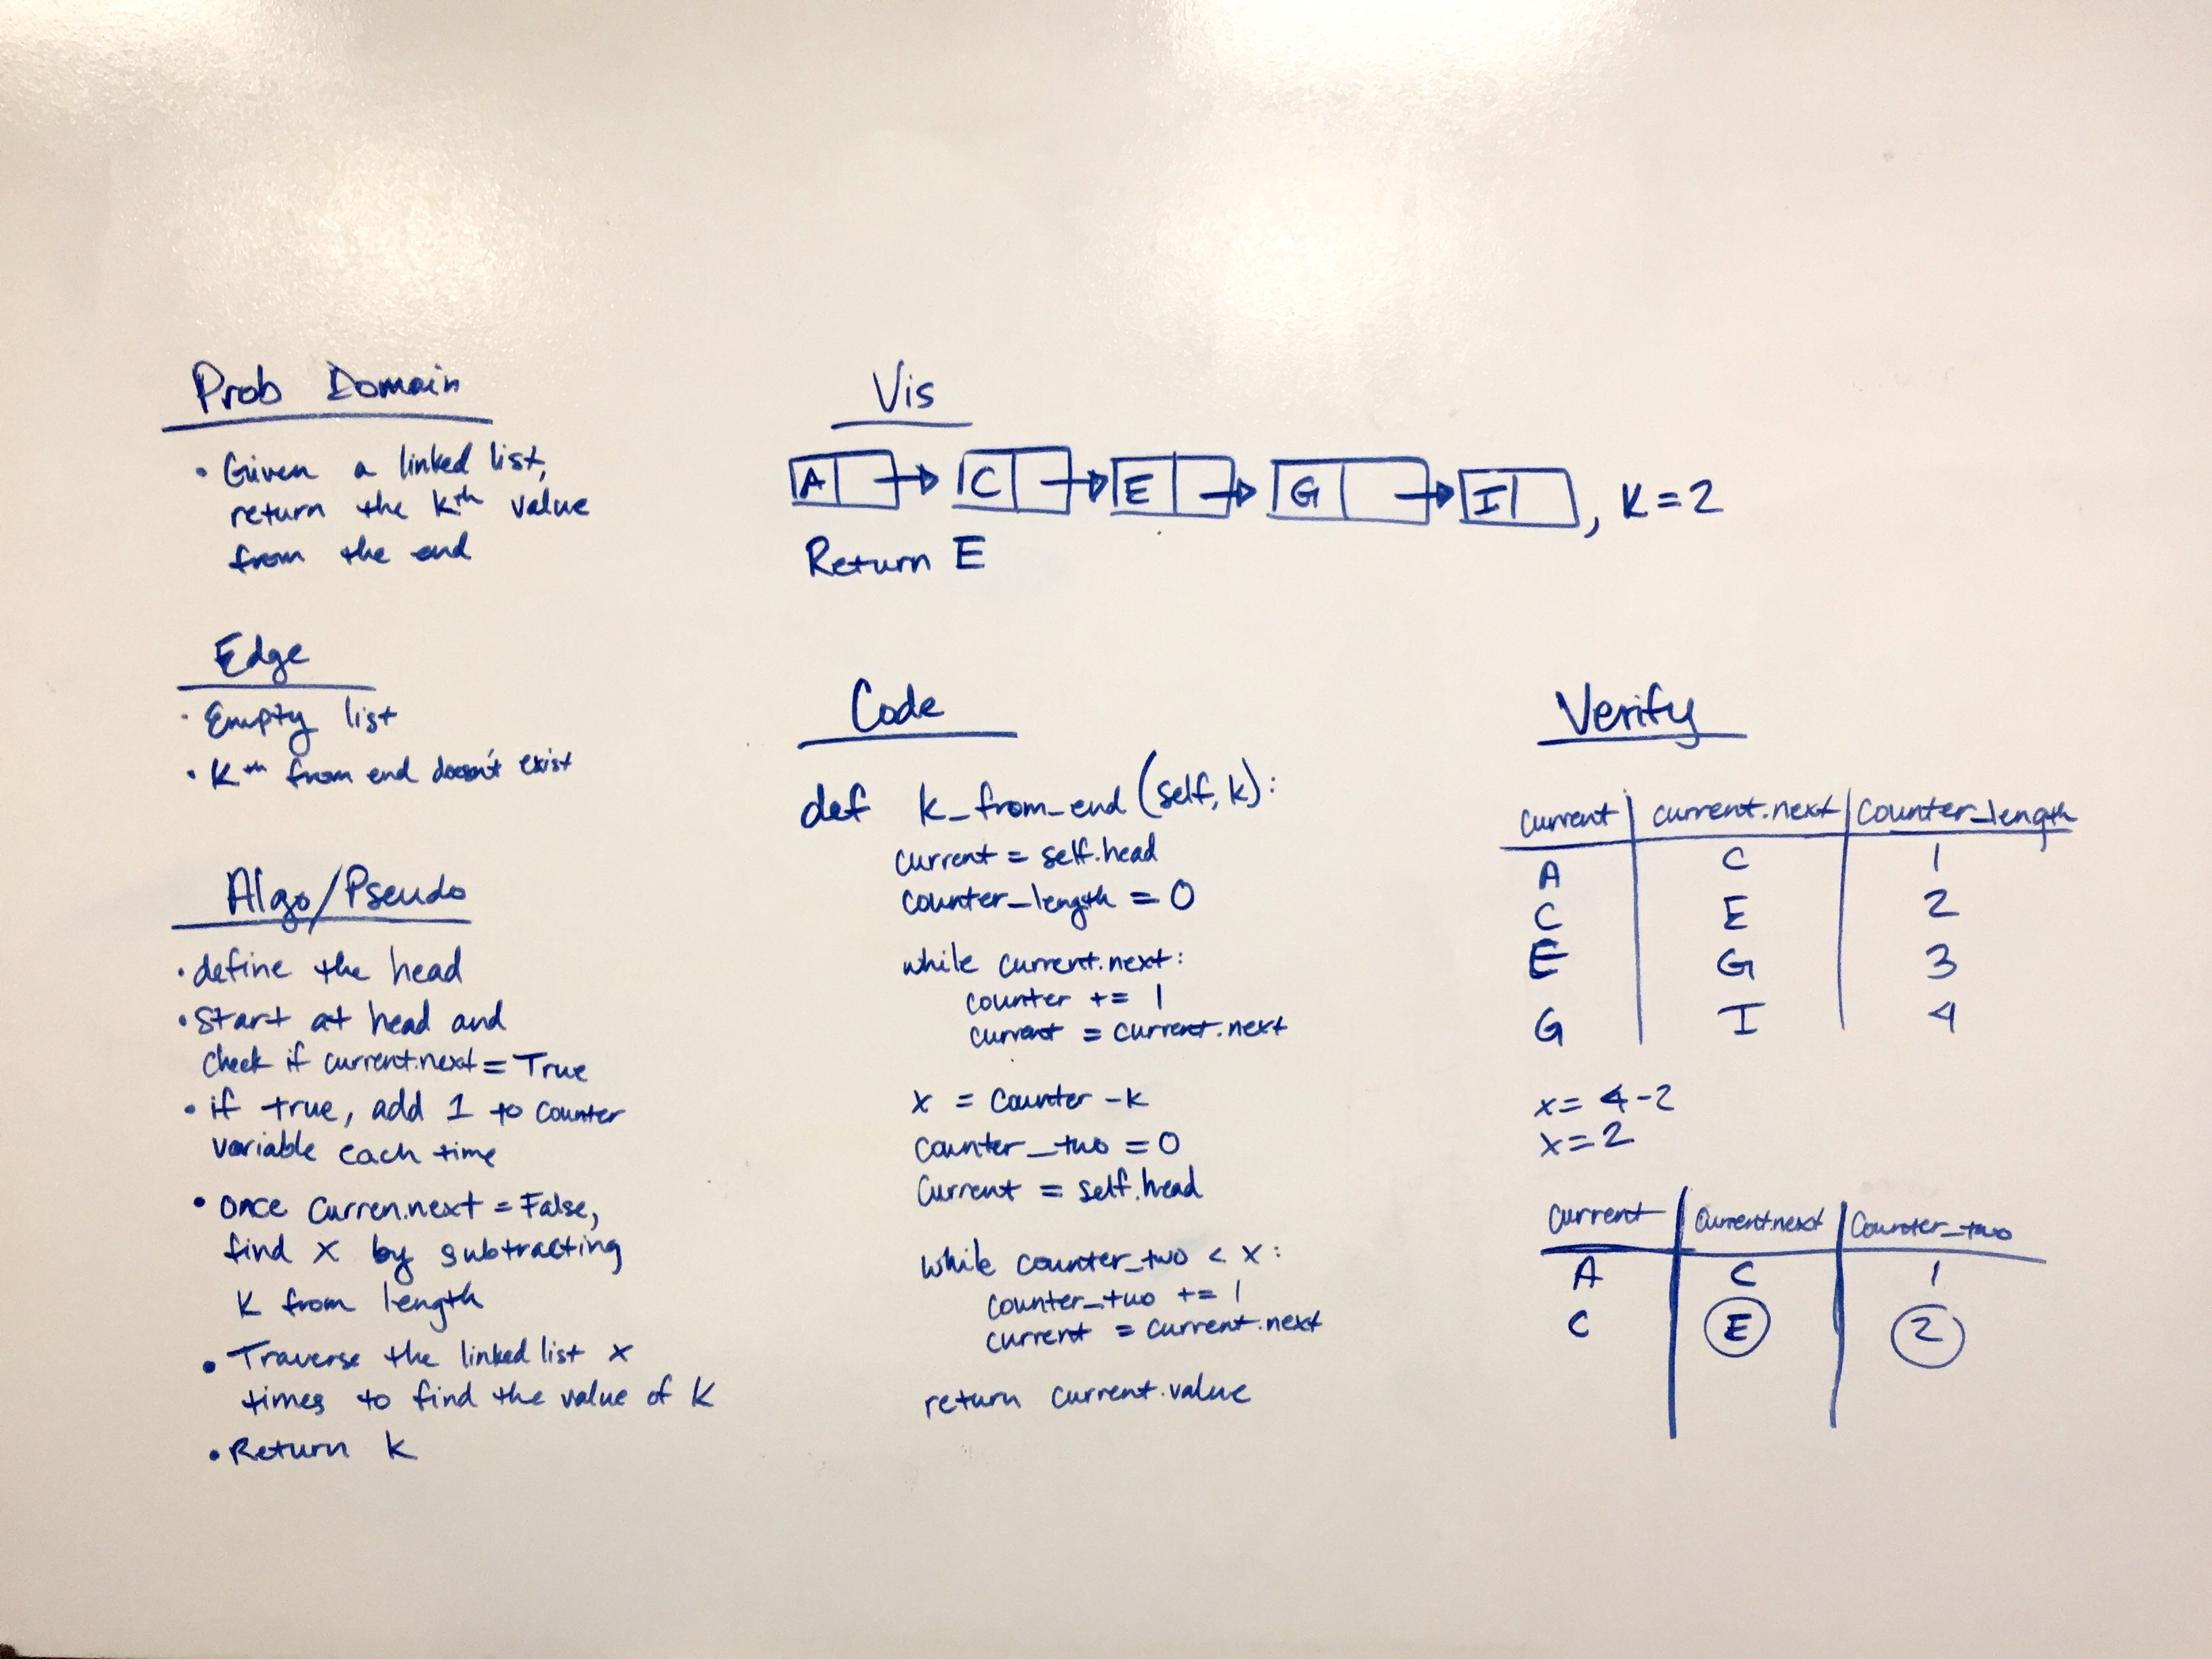 Prob Domain
• Given a linked list,
return the kth value
from the end
Edge
• Empty list
• Kth from end doesn't exist
Algo/Pseudo
• define the head
• start at head and
check if current.next = True
• if true, add 1 to counter
variable each time
• once curren.next = False,
find x by subtracting
K from length
• Traverse the linked list x
times to find the value of K
• Return k
Vis
A C E G I , K = 2
Return E
Code
def k_from_end (self, k):
current = self.head
counter_length = 0
while current.next:
counter += 1
current = current.next
x = counter - k
counter_two = 0
current = self.head
while counter_two < x:
counter_two += 1
current = current.next
return current.value
Verify
current current.next counter_length
A C 1
C E 2
E G 3
G I 4
x = 4-2
x = 2
current current.next counter_two
A C 1
C E 2